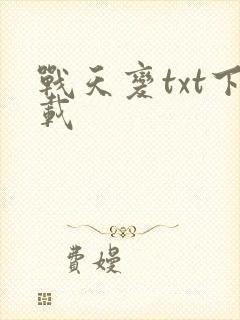 戰天變txt下
載
費嫚